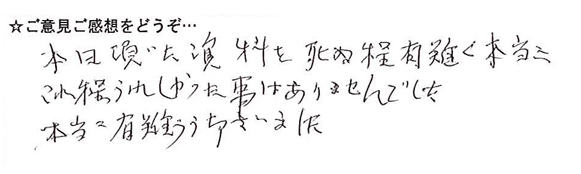 ☆ご意見ご感想をどうぞ…
本日頂いた資料を死ぬ程有難く本当に
これ程うれしかった事はありませんでした
本当に有難うございました